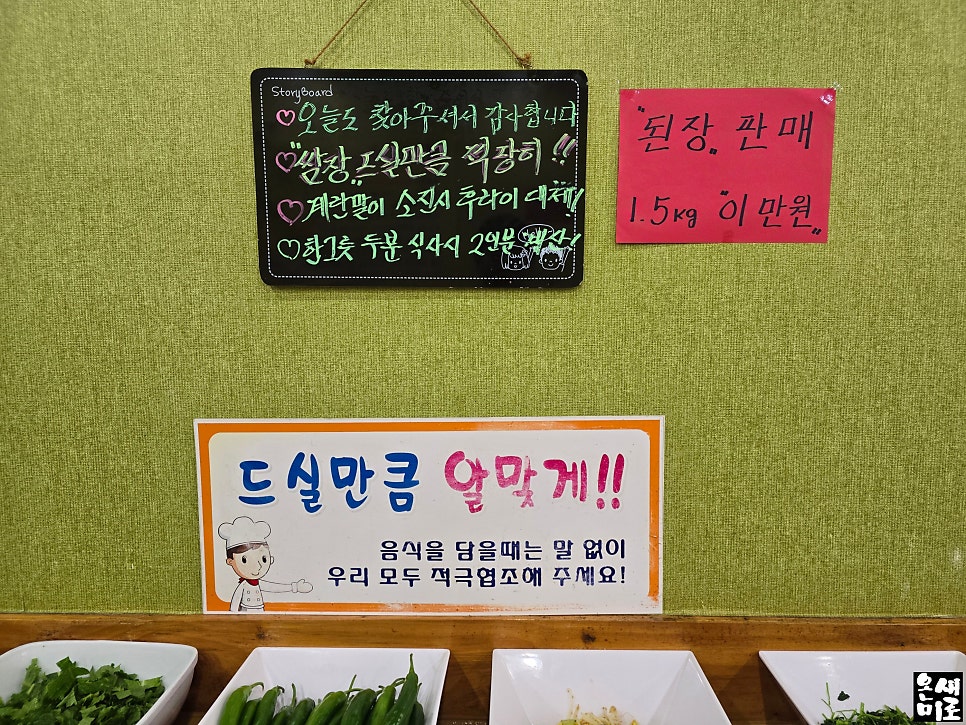 StoryBoard
오늘도 찾아주셔서 감사합니다
"쌈장" 드실만큼 적당히!!
계란말이 소진시 후라이 대체!
한그릇 두분 식사시 2인분 계산!
"된장" 판매
1.5kg "이만원"
드실만큼 알맞게!!
음식을 담을때는 말 없이
우리 모두 적극협조해 주세요!
온새미로